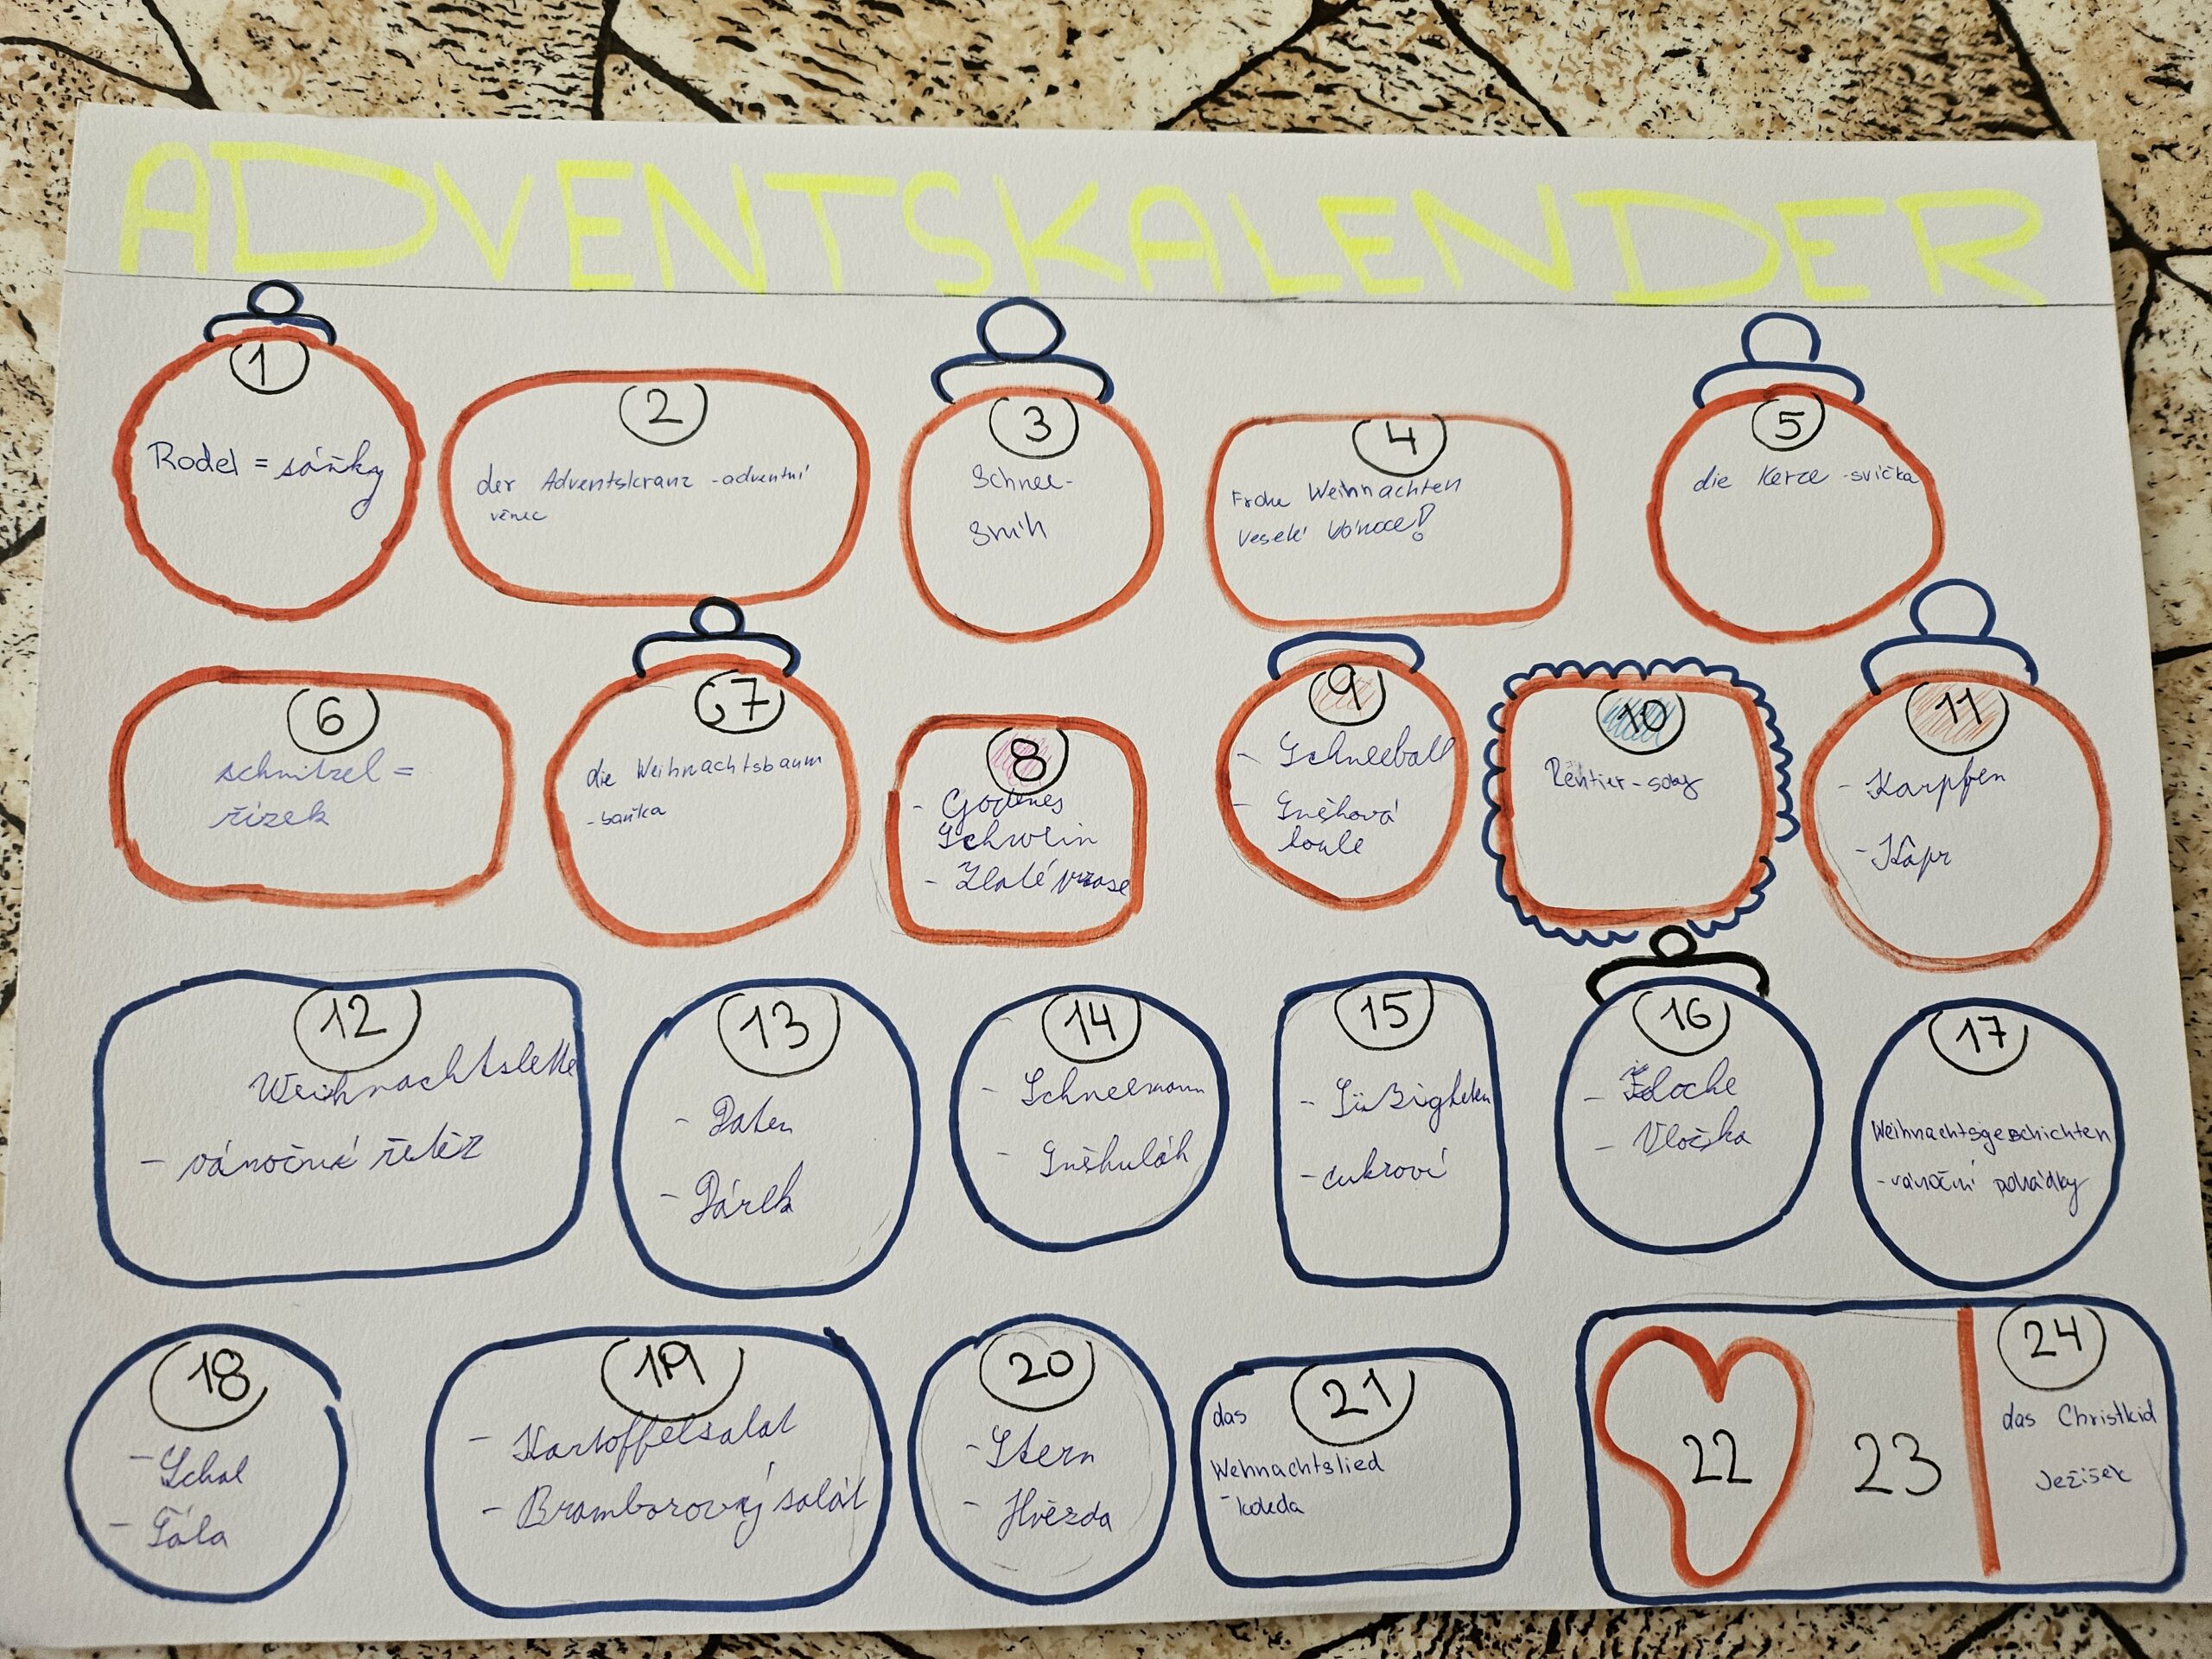 ADVENTSKALENDER
1
Rodel = sáňky
2
der Adventskranz - adventní
věnec
3
Schnee-
Sníh
4
Frohe Weihnachten
Veselé Vánoce!
5
die Kerze - svíčka
6
schnitzel =
řízek
7
die Weihnachtsbaum
- baňka
8
- Godenes
Schwein
- Zlaté prase
9
- Schneeball
- Sněhová
koule
10
Rentier - soby
11
- Karpfen
- Kapr
12
Weihnachtslette
- vánoční řetěz
13
- Daten
- Dárek
14
- Schneemann
- Sněhulák
15
- Süßigkeiten
- cukroví
16
- Flocke
- Vločka
17
Weihnachtsgeschichten
- vánoční pohádky
18
- Schal
- Šála
19
- Kartoffelsalat
- Bramborový salát
20
- Stern
- Hvězda
21
das
Wehnachtslied
- koleda
22
23
24
das Christkid
Ježíšek